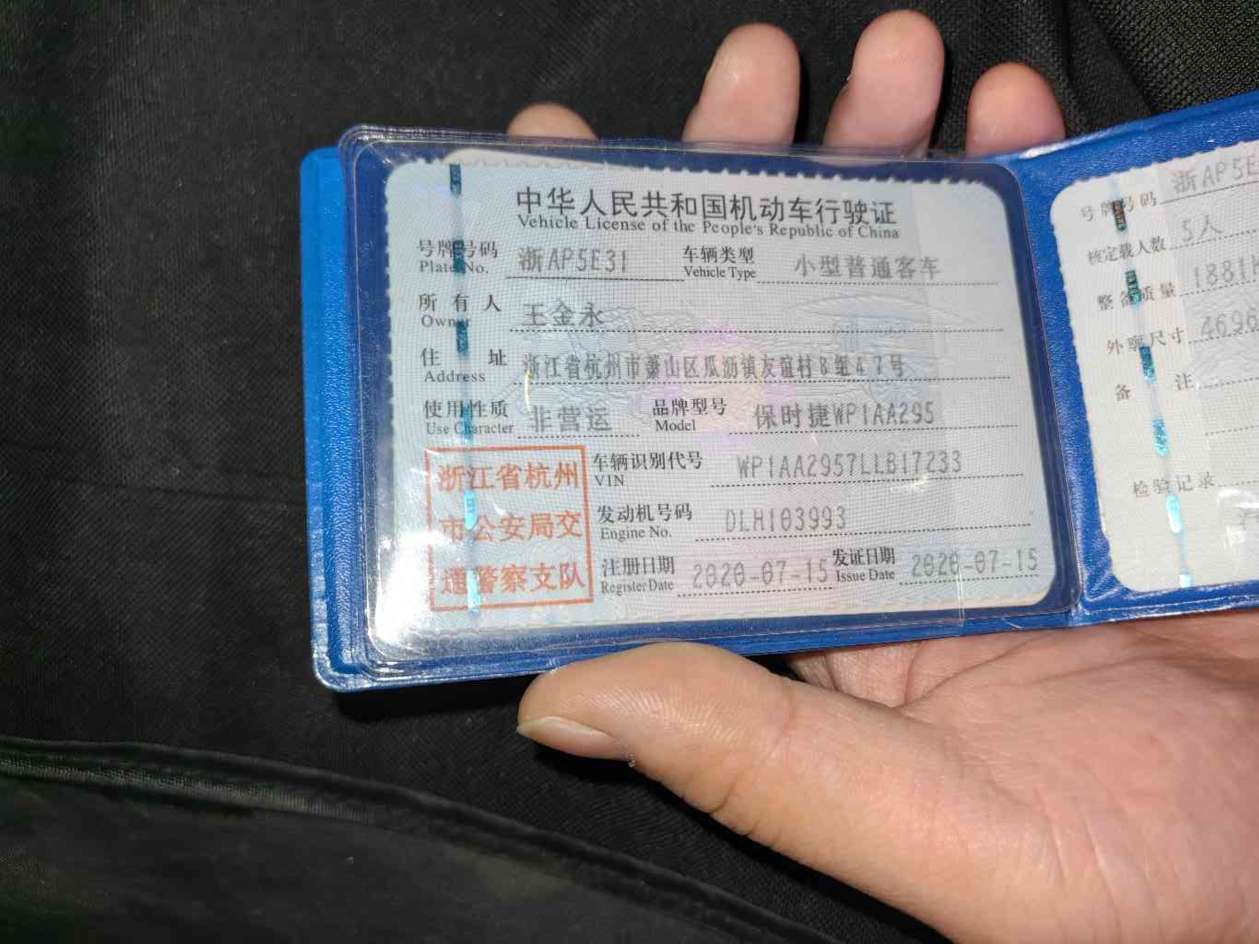 中华人民共和国机动车行驶证
Vehicle License of the People's Republic of China
号牌号码 浙AP5E31 车辆类型 小型普通客车
Plate No. Vehicle Type
所有人 王金永
Owner
住址 浙江省杭州市萧山区瓜沥镇友谊村8组47号
Address
使用性质 非营运 品牌型号 保时捷WP1AA295
Use Character Model
浙江省杭州
市公安局交
通警察支队
车辆识别代号 WP1AA2957LLB17233
VIN
发动机号码 DLH103993
Engine No.
注册日期 2020-07-15 发证日期 2020-07-15
Register Date Issue Date
号牌号码 浙AP5E
核定载人数 5人
整备质量 1881
外廓尺寸 469
备注
检验记录